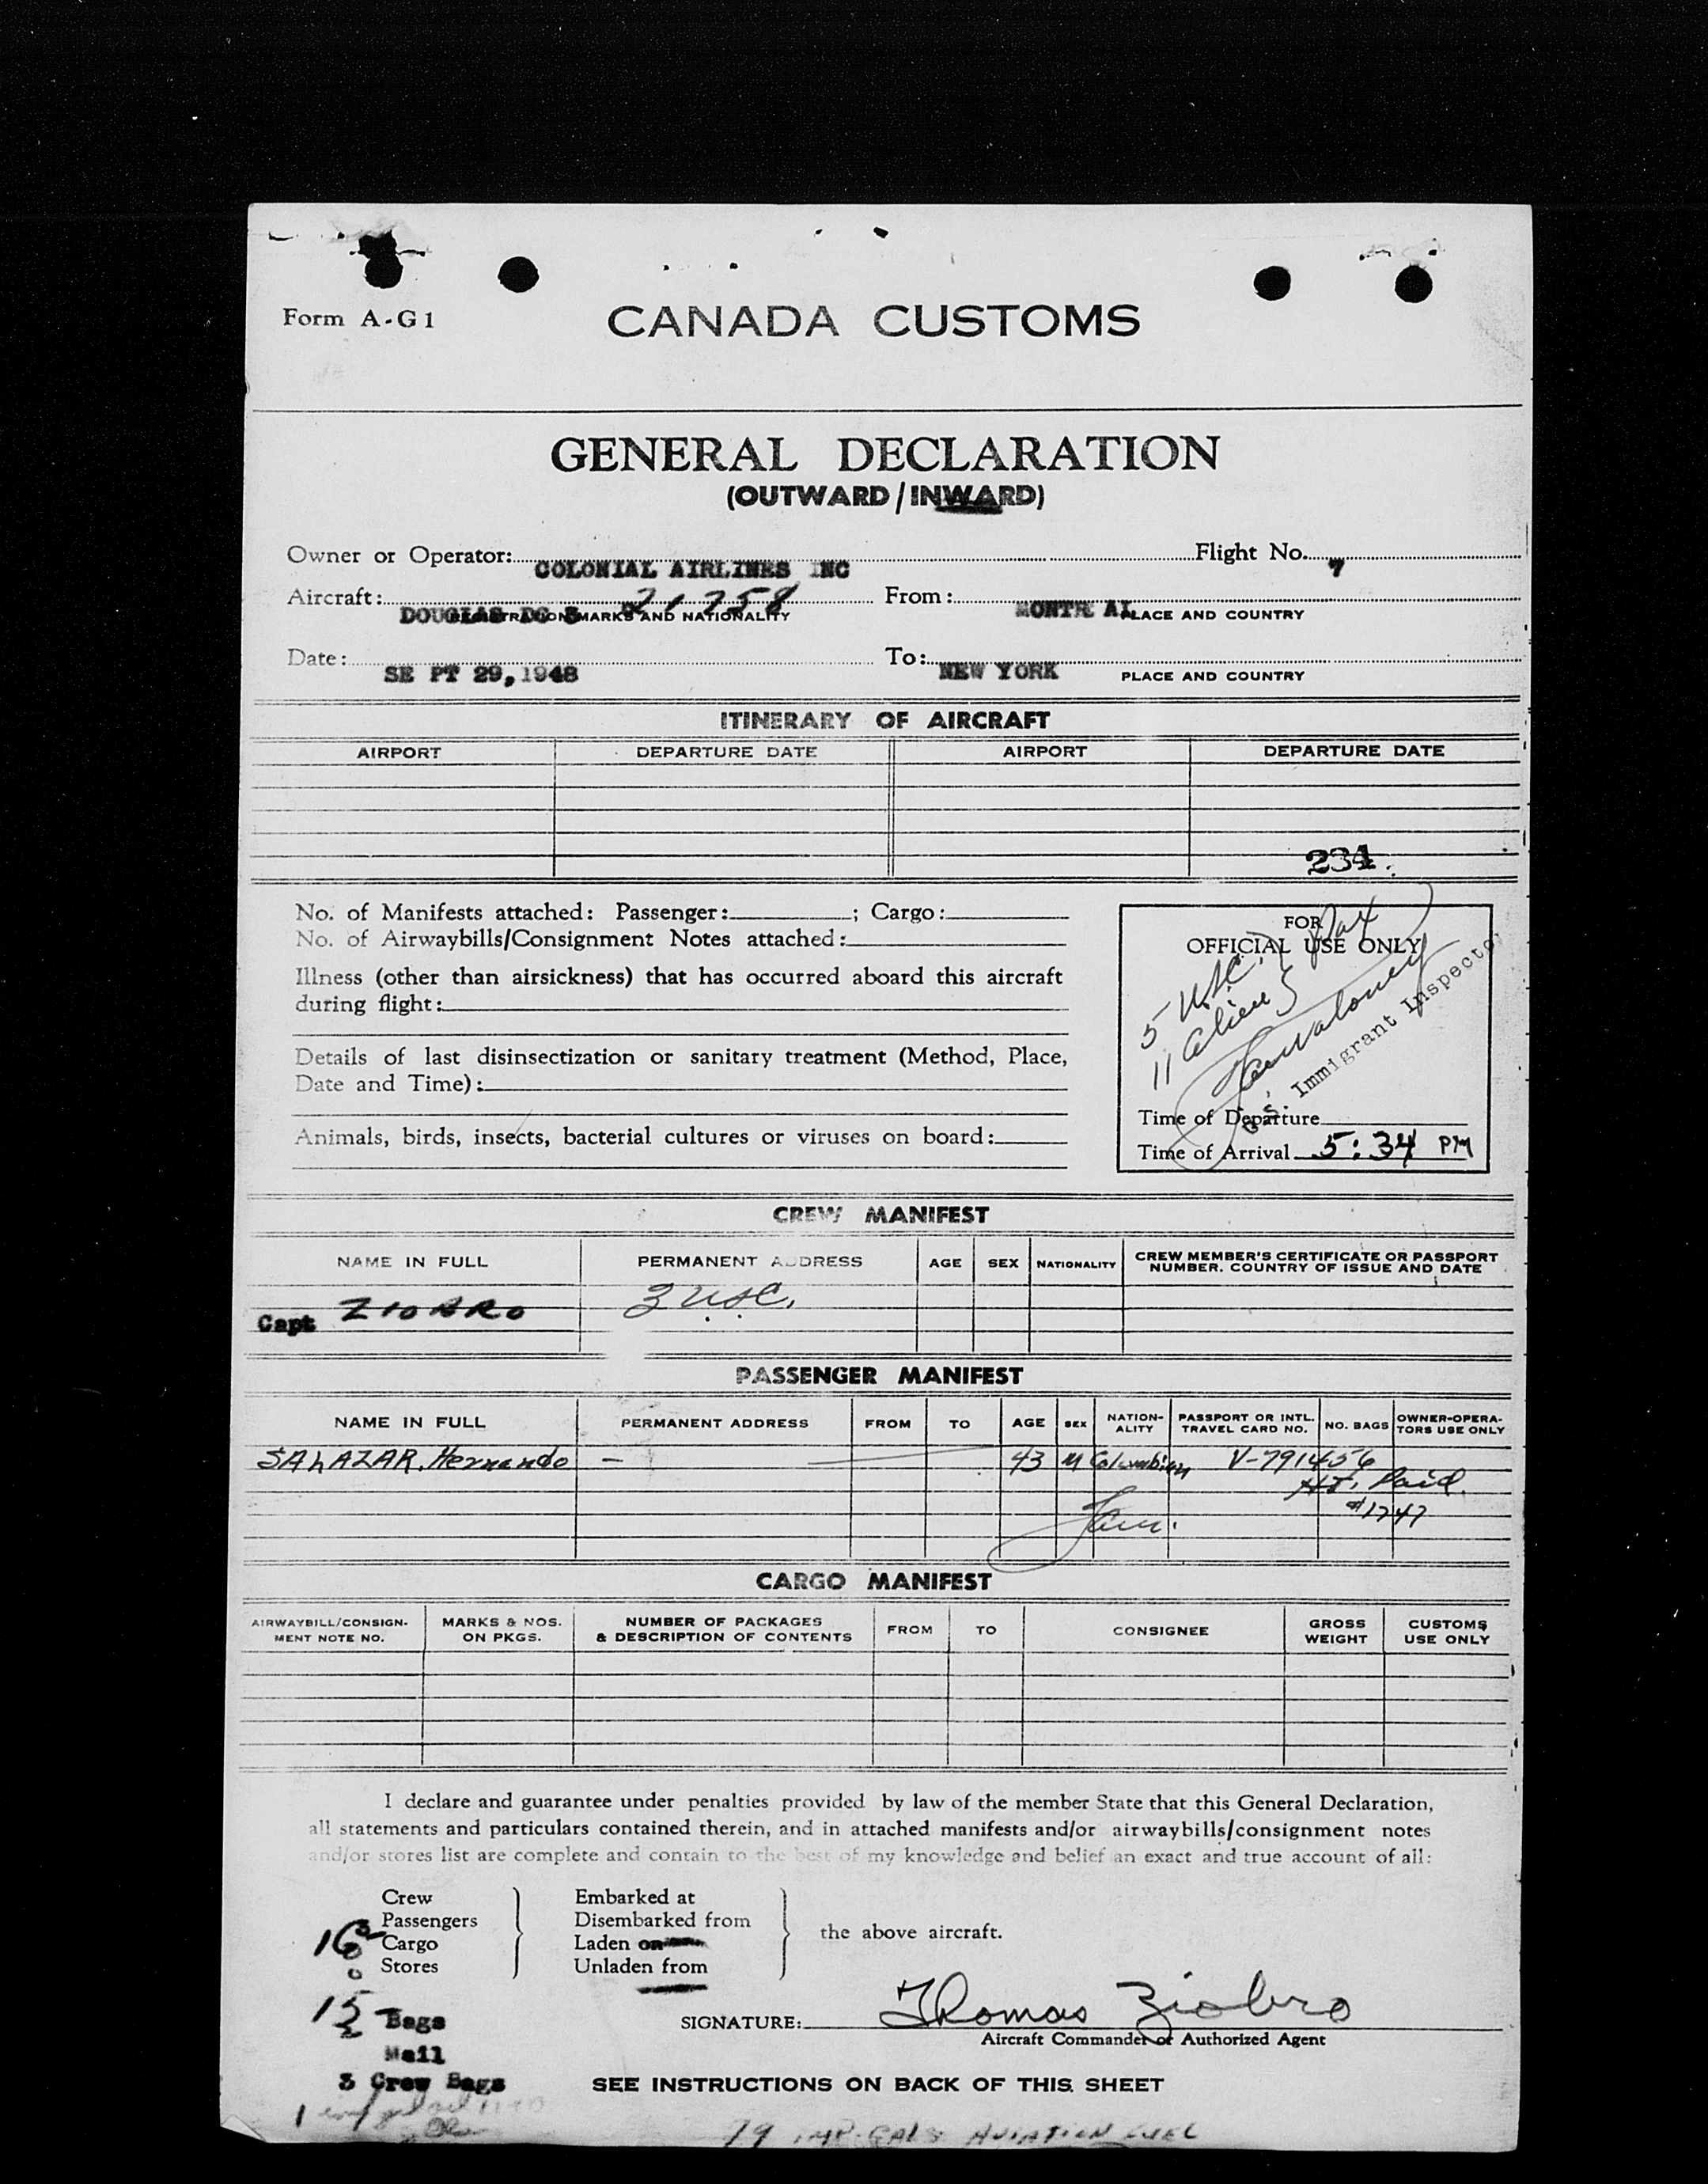 Form A-G1
CANADA CUSTOMS
GENERAL DECLARATION
(OUTWARD / INWARD)
Owner or Operator: COLONIAL AIRLINES INC Flight No. 7
Aircraft: DOUGLAS DC 3 21758 From: MONTR AL
MARKS AND NATIONALITY PLACE AND COUNTRY
Date: SE PT 29, 1948 To: NEW YORK PLACE AND COUNTRY
ITINERARY OF AIRCRAFT
AIRPORT DEPARTURE DATE AIRPORT DEPARTURE DATE
234
No. of Manifests attached: Passenger: ; Cargo:
No. of Airwaybills/Consignment Notes attached:
Illness (other than airsickness) that has occurred aboard this aircraft
during flight:
Details of last disinsectization or sanitary treatment (Method, Place,
Date and Time):
Animals, birds, insects, bacterial cultures or viruses on board:
FOR
OFFICIAL USE ONLY
5 USC
11 Alien
Immigrant Inspector
Time of Departure
Time of Arrival 5:34 PM
CREW MANIFEST
NAME IN FULL PERMANENT ADDRESS AGE SEX NATIONALITY CREW MEMBER'S CERTIFICATE OR PASSPORT
NUMBER. COUNTRY OF ISSUE AND DATE
Capt ZIOBRO 3 USC.
PASSENGER MANIFEST
NAME IN FULL PERMANENT ADDRESS FROM TO AGE SEX NATION-
ALITY PASSPORT OR INTL.
TRAVEL CARD NO. NO. BAGS OWNER-OPERA-
TORS USE ONLY
SALAZAR, Hernando — 43 M Colombian V-791456
HT. Paid.
#1747
CARGO MANIFEST
AIRWAYBILL/CONSIGN-
MENT NOTE NO. MARKS & NOS.
ON PKGS. NUMBER OF PACKAGES
& DESCRIPTION OF CONTENTS FROM TO CONSIGNEE GROSS
WEIGHT CUSTOMS
USE ONLY
I declare and guarantee under penalties provided by law of the member State that this General Declaration,
all statements and particulars contained therein, and in attached manifests and/or airwaybills/consignment notes
and/or stores list are complete and contain to the best of my knowledge and belief an exact and true account of all:
Crew Embarked at
16 Passengers Disembarked from
Cargo Laden on the above aircraft.
Stores Unladen from
15 Bags
Mail
3 Crew Bags
SIGNATURE: Thomas Ziobro
Aircraft Commander or Authorized Agent
SEE INSTRUCTIONS ON BACK OF THIS SHEET
79 IMP. GALS AVIATION FUEL